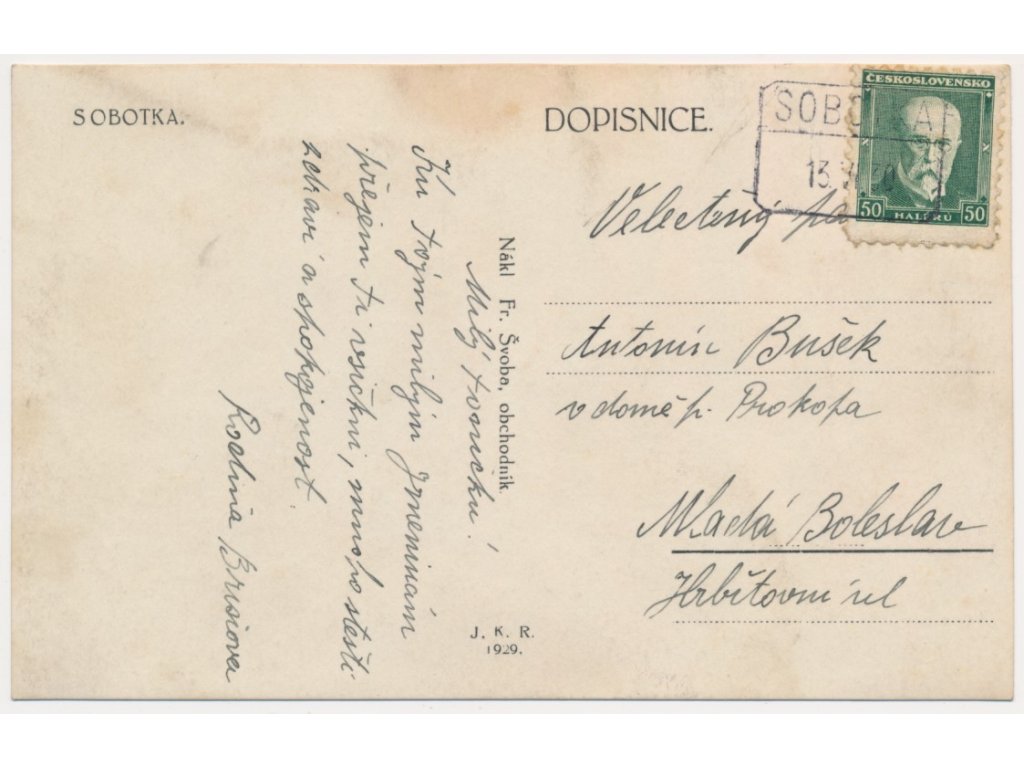 SOBOTKA.
DOPISNICE.
ČESKOSLOVENSKO
50 HALÉŘŮ 50
13.
Velectěný pa
Antonín Bušek
v domě p. Prokopa
Mladá Boleslav
Hrbitovní ul
Nákl Fr. Švoba, obchodník.
J. K. R.
1929.
Milý
Ku tvým milým Jmeninám
přejem Ti všichni, mnoho štěstí
zdraví a spokojenost
Rodina